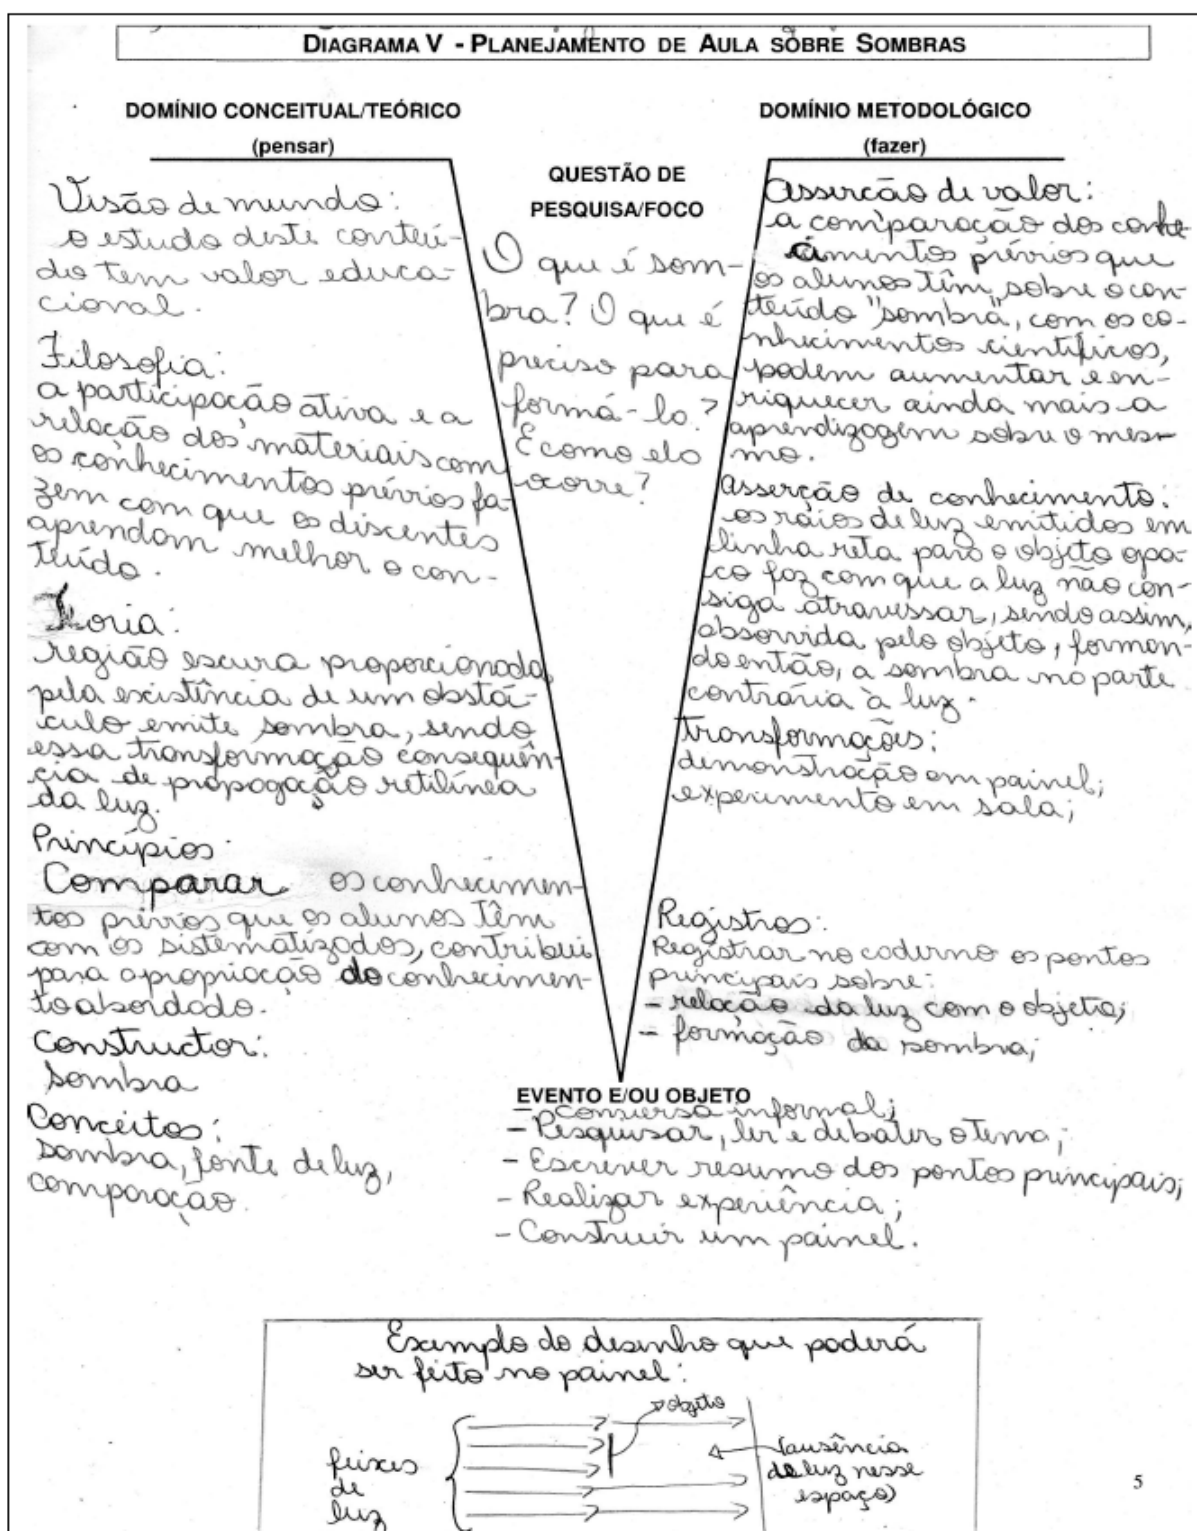 DIAGRAMA V - PLANEJAMENTO DE AULA SOBRE SOMBRAS
DOMÍNIO CONCEITUAL/TEÓRICO
(pensar)
Visão de mundo:
o estudo deste conteú-
do tem valor educa-
cional.
Filosofia:
a participação ativa e a
relação dos materiais com
os conhecimentos prévios fa-
zem com que os discentes
aprendam melhor o con-
teúdo.
Teoria:
região escura proporcionada
pela existência de um obstá-
culo emite sombra, sendo
essa transformação consequên-
cia de propagação retilínea
da luz.
Princípios:
Comparar os conhecimen-
tos prévios que os alunos têm
com os sistematizados, contribui
para apropriação do conhecimen-
to abordado.
Constructor:
sombra
Conceitos:
sombra, fonte de luz,
comparação.
QUESTÃO DE
PESQUISA/FOCO
O que é som-
bra? O que é
preciso para
formá-la?
E como ela
ocorre?
DOMÍNIO METODOLÓGICO
(fazer)
Asserção de valor:
a comparação dos conhe
cimentos prévios que
os alunos têm, sobre o con-
teúdo "sombra", com os co-
nhecimentos científicos,
podem aumentar e en-
riquecer ainda mais a
aprendizagem sobre o mes-
mo.
Asserção de conhecimento:
os raios de luz emitidos em
linha reta para o objeto opa-
co faz com que a luz não con-
siga atravessar, sendo assim,
absorvida pelo objeto, forman-
do então, a sombra na parte
contrária à luz.
transformações:
demonstração em painel;
experimento em sala;
Registros:
Registrar no caderno os pontos
principais sobre:
- relação da luz com o objeto;
- formação da sombra;
EVENTO E/OU OBJETO
- conversa informal;
- Pesquisar, ler e debater o tema;
- Escrever resumo dos pontos principais;
- Realizar experiência;
- Construir um painel.
Exemplo do desenho que poderá
ser feito no painel:
objeto
feixes
de
luz
(ausência
de luz nesse
espaço)
5